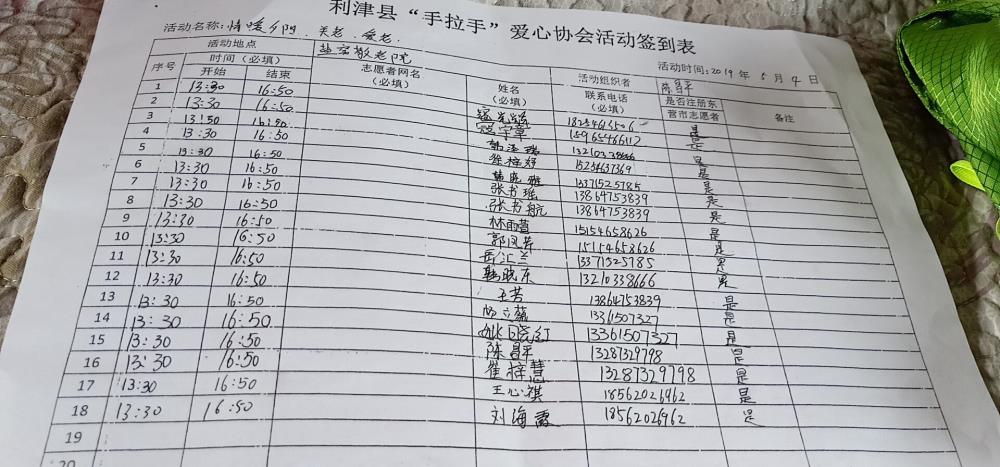 利津县“手拉手”爱心协会活动签到表
活动名称:情暖夕阳.关老.爱老. 活动时间:2019年5月4日
活动地点 敬老院 活动组织者 昌平
序号 时间(必填) 志愿者网名(必填) 姓名(必填) 联系电话(必填) 是否注册东营市志愿者 备注
开始 结束
1 13:30 16:50
2 13:30 16:50 是
3 13:50 16:50 15965466112 是
4 13:30 16:50
5 13:30 16:50 15254637369 是
6 13:30 16:50 15371525785 是
7 13:30 16:50 张书瑶 13864753839 是
8 13:30 16:50 张书航 13864753839 是
9 13:30 16:50 林雨萱 15154658626 是
10 13:30 16:50 郭凤芹 15154658626 是
11 13:30 16:50 岳汇兰 13371525785 是
12 13:30 16:50 韩晓东 13210338666 是
13 13:30 16:50 王芳 13864753839 是
14 13:30 16:50 13361507327 是
15 13:30 16:50 13361507327 是
16 13:30 16:50 陈昌平 13287329798 是
崔梓慧 13287329798 是
17 13:30 16:50 王心祺 18562026962 是
18 13:30 16:50 刘海霞 18562026962 是
19
20